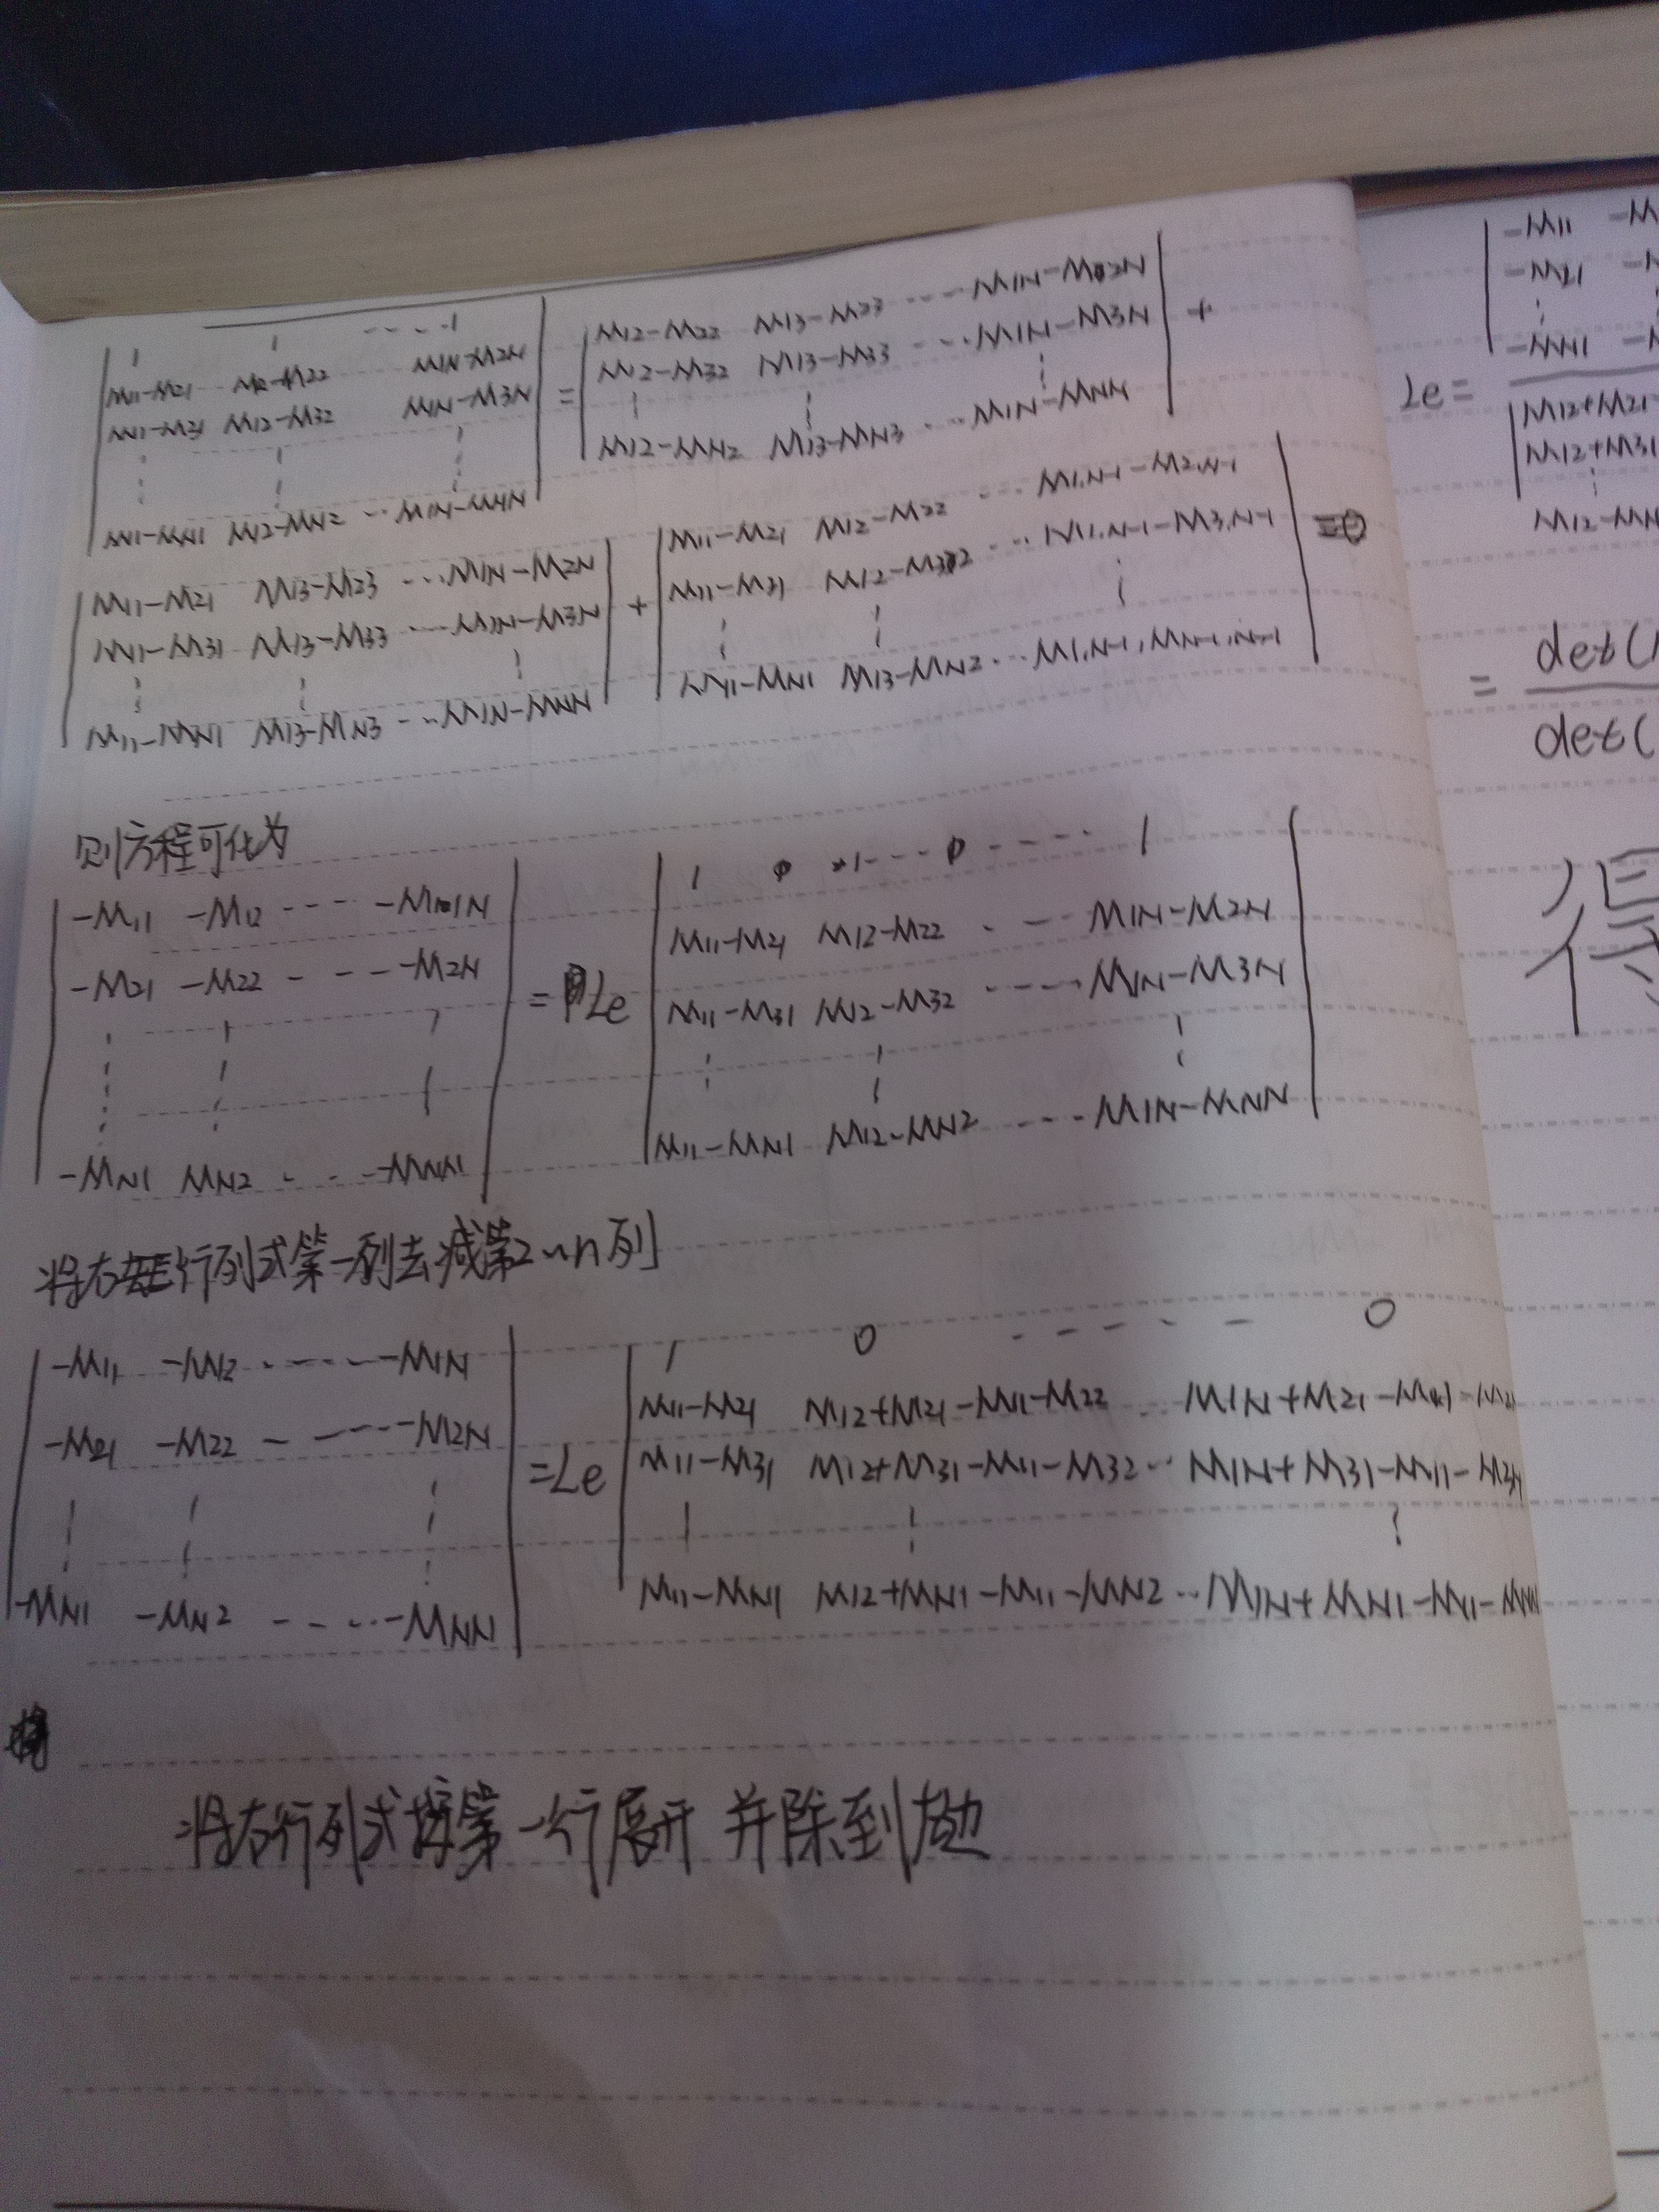 1 1 ---- 1
M11-M21 M12-M22 M1N-M2N
M11-M31 M12-M32 M1N-M3N
M11-MN1 M12-MN2 -- M1N-MNN
=
M12-M22 M13-M23 ---- M1N-M2N
M12-M32 M13-M33 --- M1N-M3N
M12-MN2 M13-MN3 -- M1N-MNN
+
M11-M21 M13-M23 ---M1N-M2N
M11-M31 M13-M33 ---M1N-M3N
M11-MN1 M13-MN3 ---M1N-MNN
+
M11-M21 M12-M22 --- M1.N-1-M2.N-1
M11-M31 M12-M32 --- M1.N-1-M3.N-1
M11-MN1 M13-MN2 --- M1.N-1,MN-1.N-1
则方程可化为
-M11 -M12 ---- -M1N
-M21 -M22 - - - -M2N
-MN1 MN2 - - - -MNN
= Le
M11-M21 M12-M22 - - M1N-M2N
M11-M31 M12-M32 ---- M1N-M3N
M11-MN1 M12-MN2 --- M1N-MNN
将右行列式第一列去减第2~n列
-M11 -M12 ----- -M1N
-M21 -M22 - ---- -M2N
-MN1 -MN2 - - -- -MNN
=Le
1 0 - - - - - - 0
M11-M21 M12+M21-M11-M22 -- M1N+M21-M11-
M11-M31 M12+M31-M11-M32 -- M1N+M31-M11-
M11-MN1 M12+MN1-M11-MN2 -- M1N+MN1-M11-MNN
将右行列式按第一行展开 并除到左边
-M11 -M
-M21
-MN1
Le=
M12+M21
M12+M31
M12-MN
= det(
det(
得